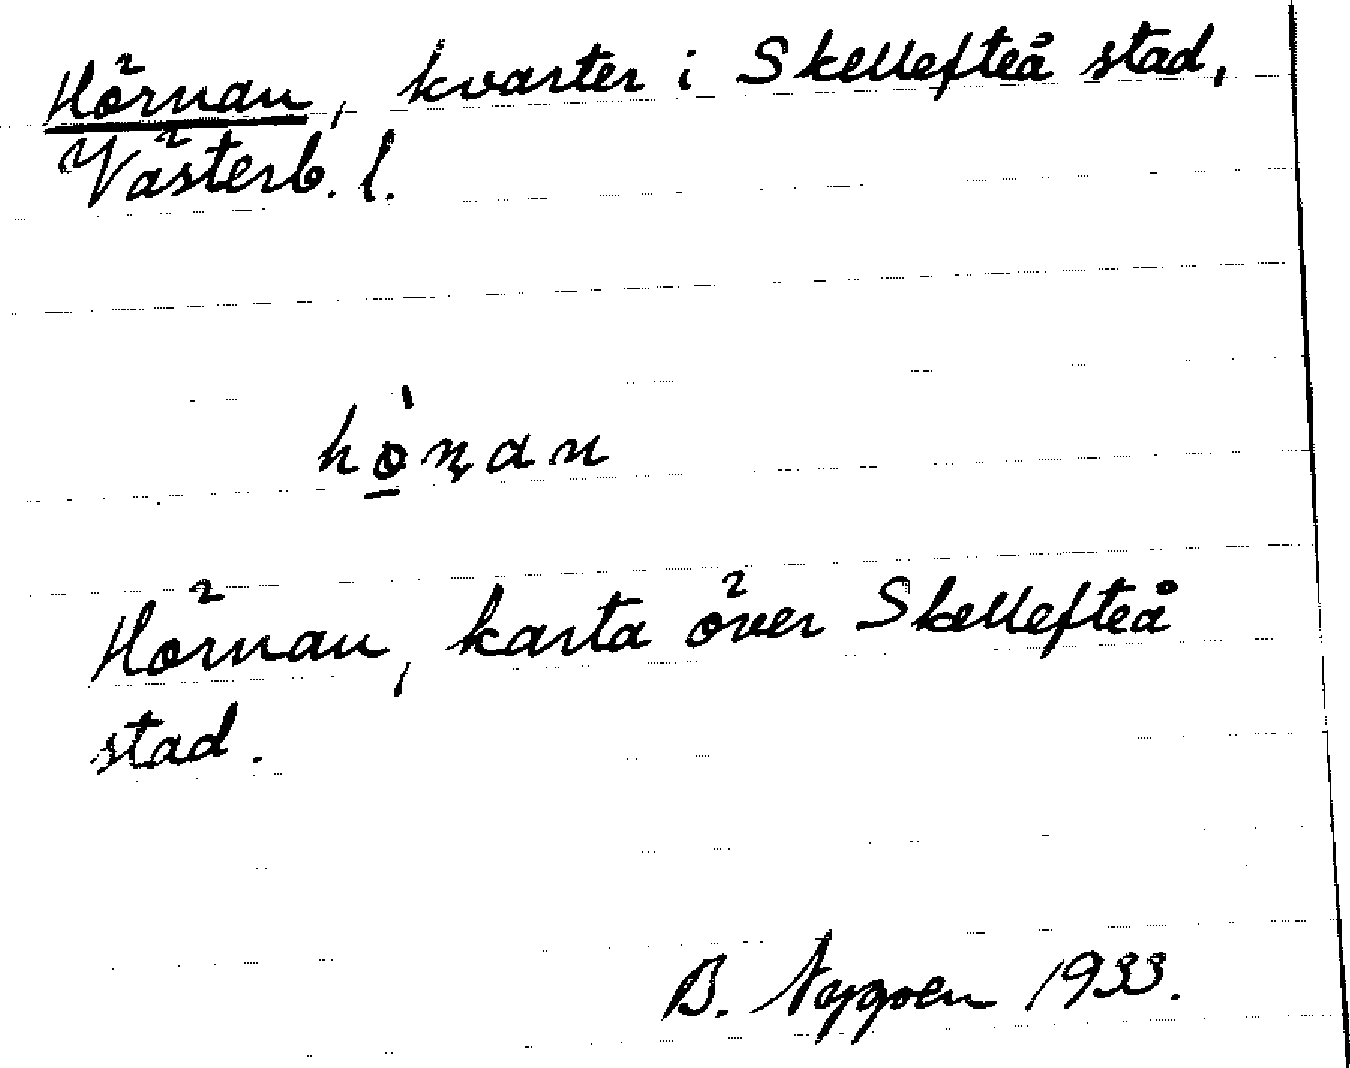 Hörnan, kvarter i Skellefteå stad,
Västerb. l.
hö̀ṇan
Hörnan, karta över Skellefteå
stad.
B. Nygren 1933.